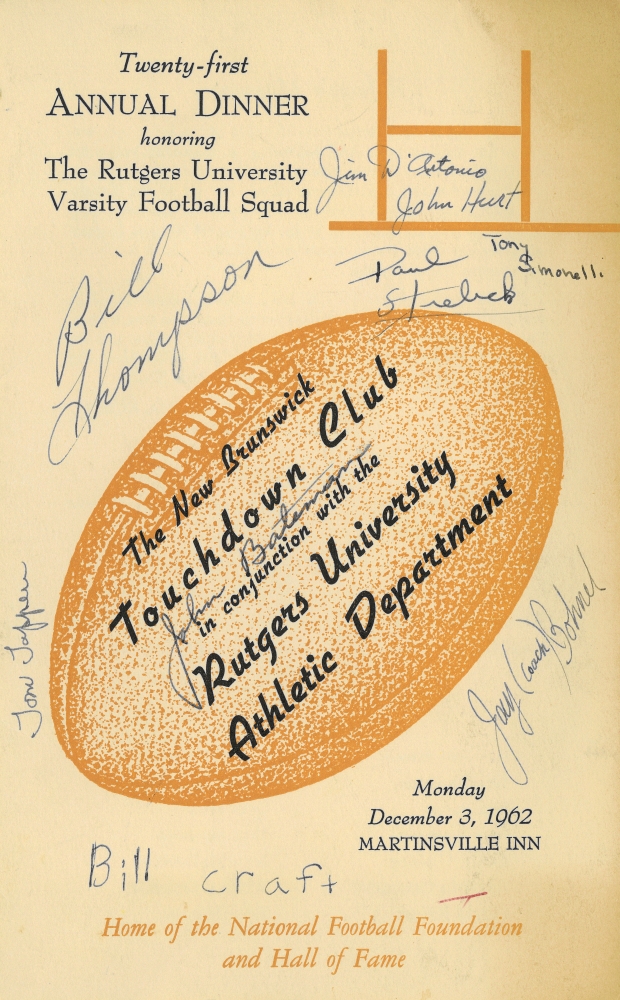 Twenty-first
ANNUAL DINNER
honoring
The Rutgers University
Varsity Football Squad
Jim D'Antonio
John Hurt
Tony
Simonelli
Paul
Strelick
Bill
Thompson
The New Brunswick
Touchdown Club
John Bateman
in conjunction with the
Rutgers University
Athletic Department
Tom Tappen
Jay (Coach) Bohnel
Monday
December 3, 1962
MARTINSVILLE INN
Bill craft
Home of the National Football Foundation
and Hall of Fame